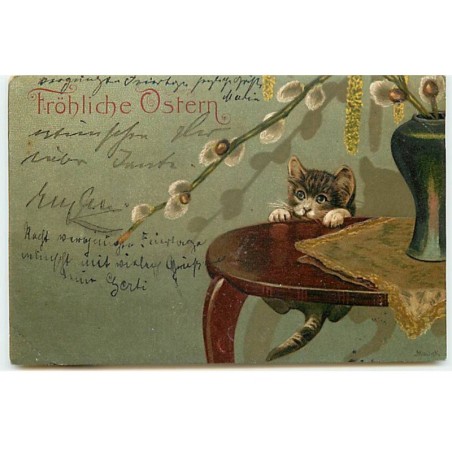 vergnügte Feiertage herzliche Grüße
Malin
Fröhliche Ostern
wünschen Dir
liebe Tante
Recht vergnügte Feiertage
wünscht mit vielen Grüß
Deine Gerti